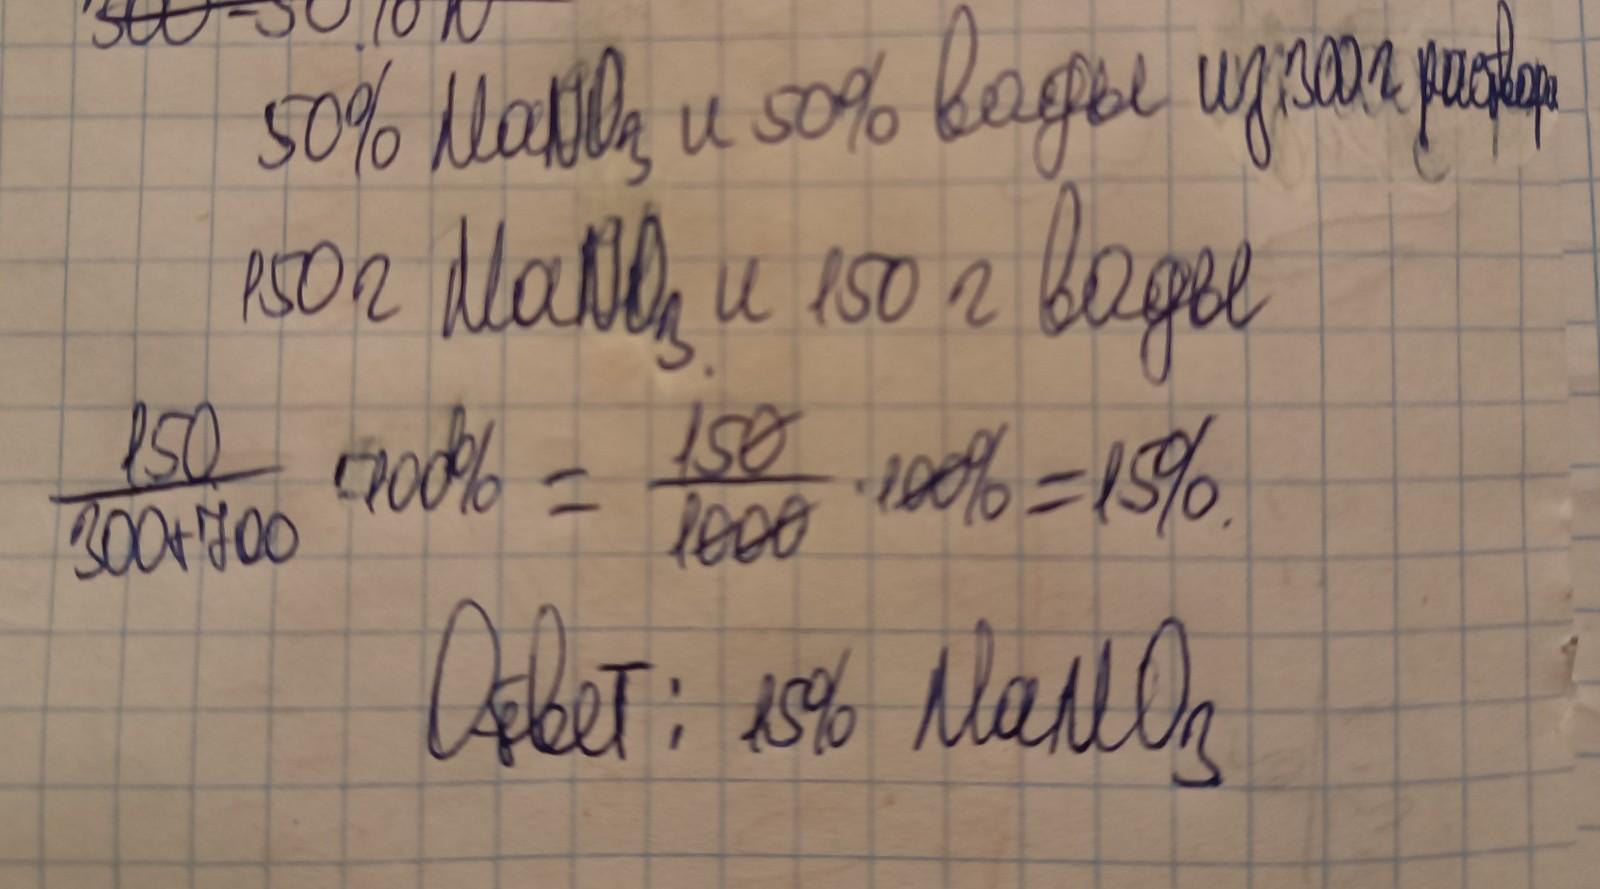 50% NaNO3 и 50% воды из 300 г раствора
150 г NaNO3 и 150 г воды
150/300+700 · 100% = 150/1000 · 100% = 15%.
Ответ: 15% NaNO3